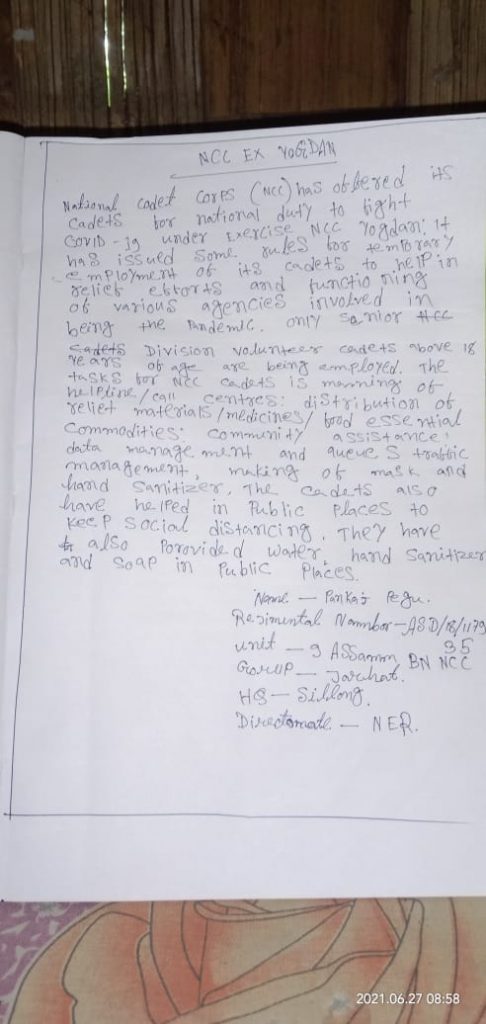 NCC EX YOGDAN
National cadet corps (NCC) has offered its
cadets for national duty to fight
COVID-19 under Exercise NCC Yogdan: It
has issued some rules for temporary
employment of its cadets to help in
relief efforts and functioning
of various agencies involved in
being the Pandemic. only senior NCC
cadets Division volunteer cadets above 18
years of age are being employed. The
tasks for NCC cadets is manning of
helpline/call centres: distribution of
relief materials/medicines/food essential
Commodities: community assistance:
data management and queue S traffic
management, making of mask and
hand Sanitizer. The cadets also
have helped in Public Places to
keep social distancing. They have
also Porovided water, hand Sanitizer
and soap in Public Places.
Name — Pankaj Pegu.
Regimental Nomnbor - ASD/18/1179
35
unit — 9 ASSamm BN NCC
Gorup — Jorhat.
HQ — Sillong.
Directorate — NER.
2021.06.27 08:58